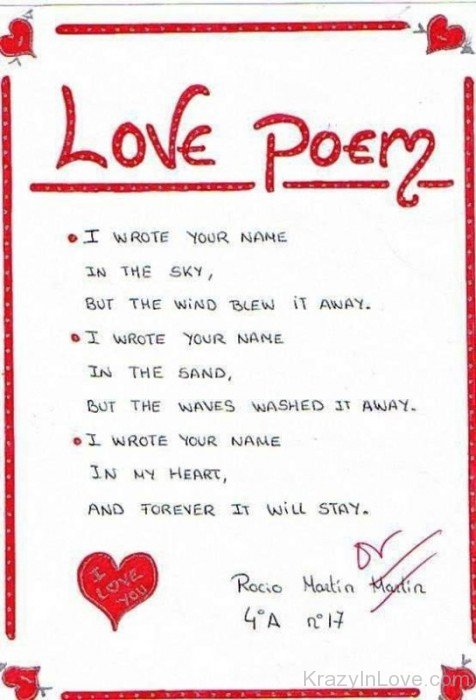 LOVE POEM
I WROTE YOUR NAME
IN THE SKY,
BUT THE WIND BLEW IT AWAY.
I WROTE YOUR NAME
IN THE SAND,
BUT THE WAVES WASHED IT AWAY.
I WROTE YOUR NAME
IN MY HEART,
AND FOREVER IT WILL STAY.
I
LOVE
YOU
Rocio Martín Martín
4ºA nº17
KrazyInLove.com